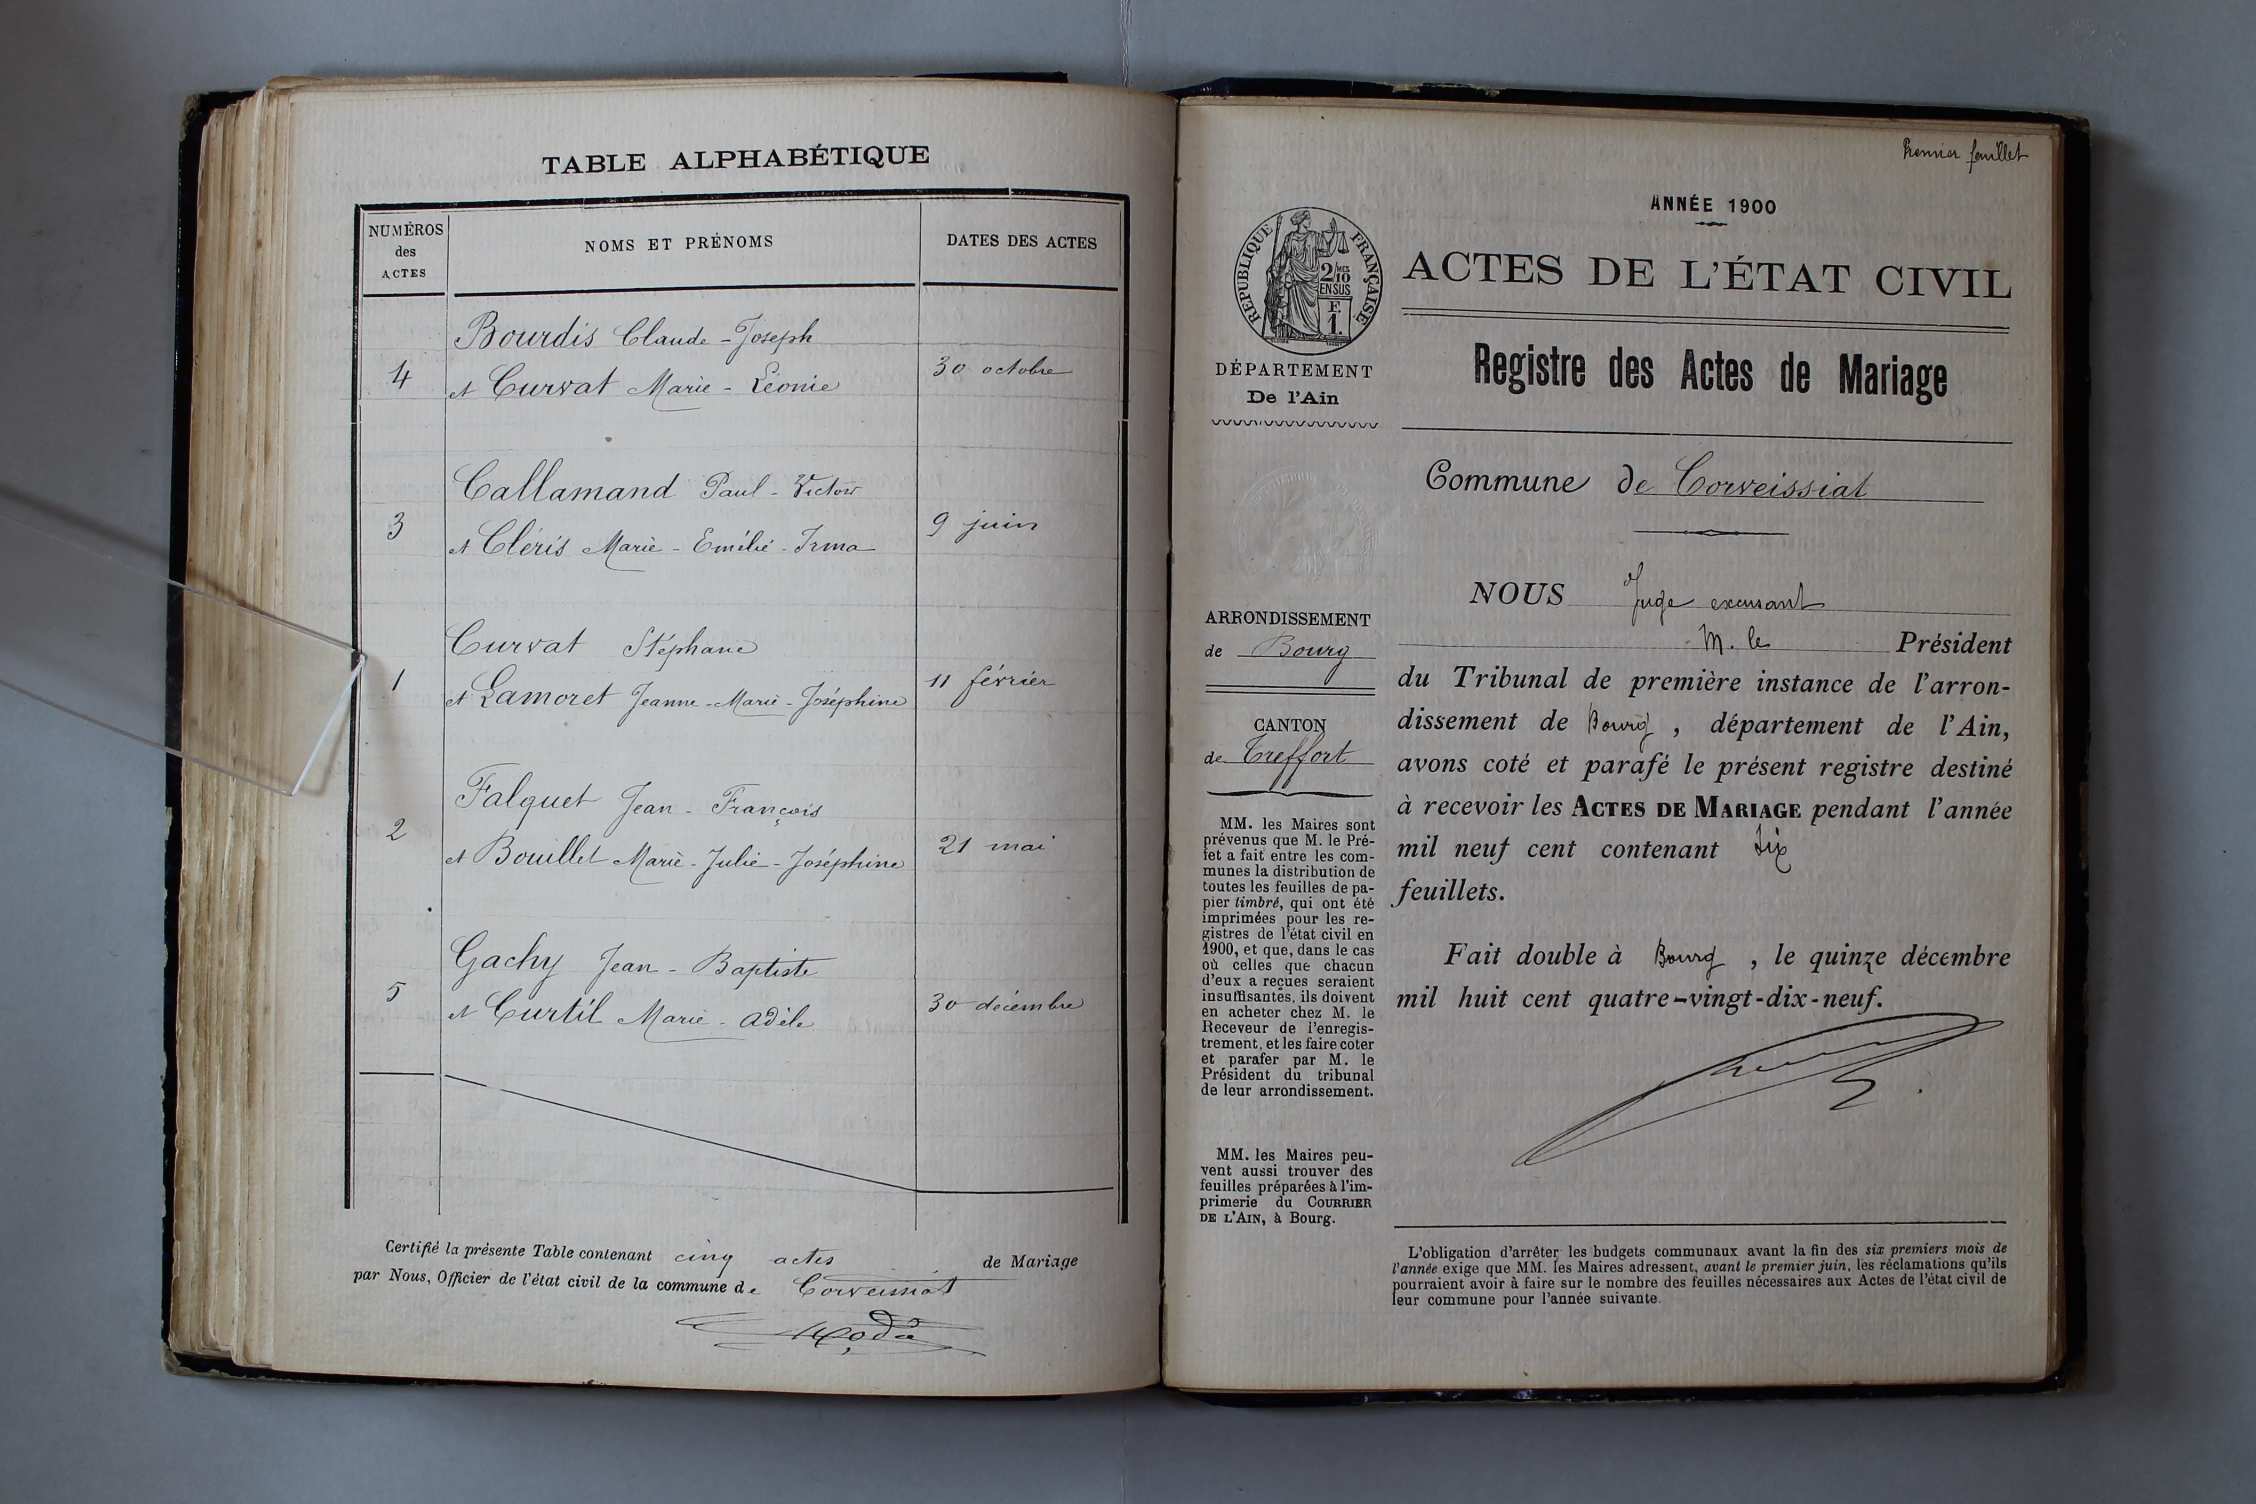 TABLE ALPHABÉTIQUE
NUMÉROS
des
ACTES
NOMS ET PRÉNOMS
DATES DES ACTES
Bourdis Claude - Joseph
4 et Curvat Marie - Léonie 30 octobre
Callamand Paul - Victor
3 et Cléris Marie - Emélie - Irma 9 juin
Curvat Stéphane
1 et Lamoret Jeanne - Marie - Joséphine 11 février
Falquet Jean - François
2 et Bouillet Marie - Julie - Joséphine 21 mai
Gachy Jean - Baptiste
5 et Curtil Marie - Adèle 30 décembre
Certifié la présente Table contenant cinq actes de Mariage
par Nous, Officier de l'état civil de la commune de Corveissiat
Premier feuillet
ANNÉE 1900
RÉPUBLIQUE FRANÇAISE
2/10 MES
EN SUS
F.
1.
ACTES DE L'ÉTAT CIVIL
Registre des Actes de Mariage
DÉPARTEMENT
De l'Ain
Commune de Corveissiat
ARRONDISSEMENT
de Bourg
CANTON
de Treffort
MM. les Maires sont
prévenus que M. le Pré-
fet a fait entre les com-
munes la distribution de
toutes les feuilles de pa-
pier timbré, qui ont été
imprimées pour les re-
gistres de l'état civil en
1900, et que, dans le cas
où celles que chacun
d'eux a reçues seraient
insuffisantes, ils doivent
en acheter chez M. le
Receveur de l'enregis-
trement, et les faire coter
et parafer par M. le
Président du tribunal
de leur arrondissement.
MM. les Maires peu-
vent aussi trouver des
feuilles préparées à l'im-
primerie du COURRIER
DE L'AIN, à Bourg.
NOUS Juge excusant
M. le Président
du Tribunal de première instance de l'arron-
dissement de Bourg, département de l'Ain,
avons coté et parafé le présent registre destiné
à recevoir les ACTES DE MARIAGE pendant l'année
mil neuf cent contenant six
feuillets.
Fait double à Bourg, le quinze décembre
mil huit cent quatre-vingt-dix-neuf.
L'obligation d'arrêter les budgets communaux avant la fin des six premiers mois de
l'année exige que MM. les Maires adressent, avant le premier juin, les réclamations qu'ils
pourraient avoir à faire sur le nombre des feuilles nécessaires aux Actes de l'état civil de
leur commune pour l'année suivante.